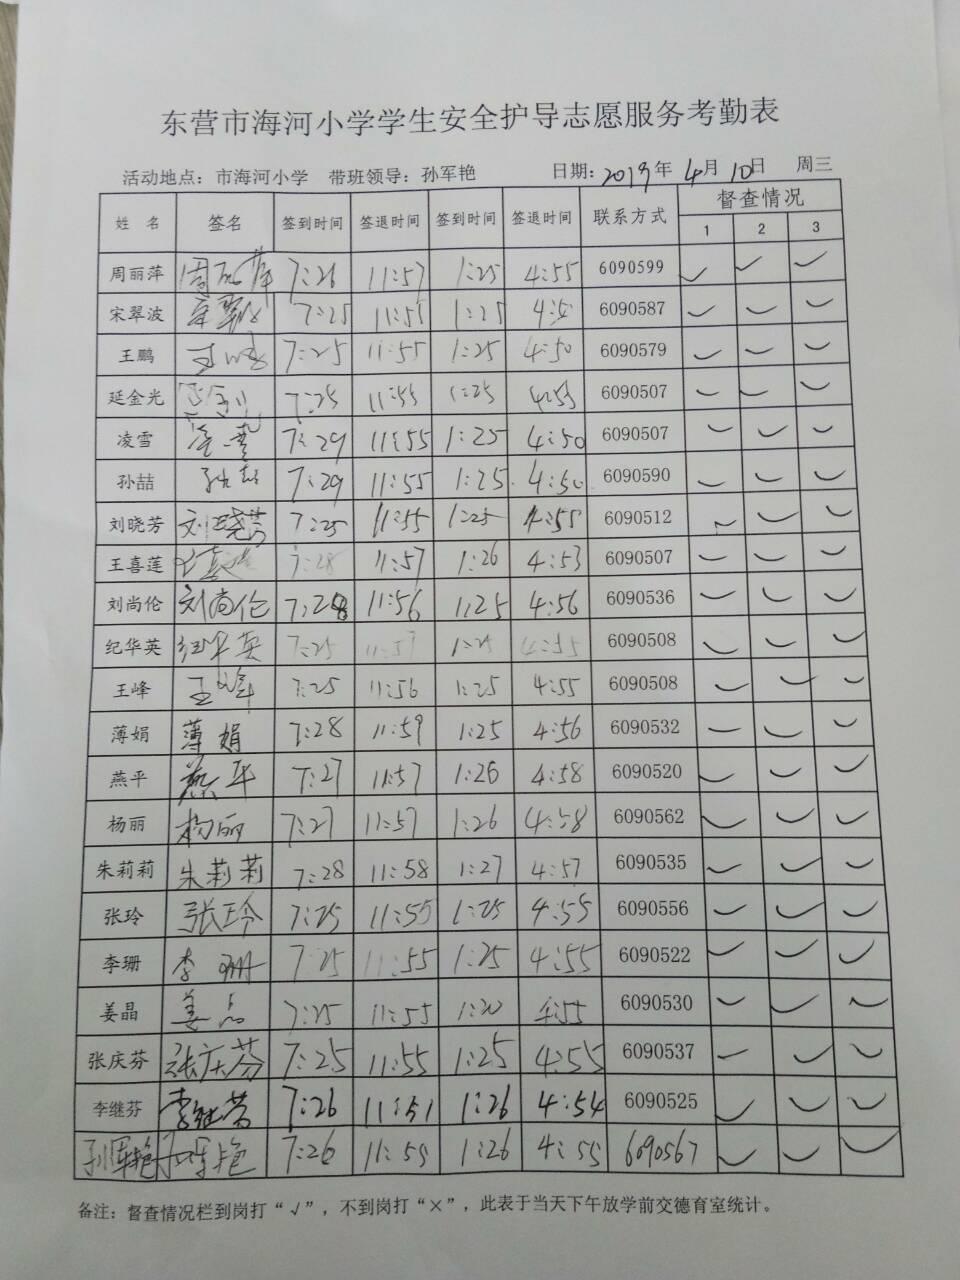 东营市海河小学学生安全护导志愿服务考勤表
活动地点：市海河小学 带班领导：孙军艳 日期：2019年4月10日 周三
姓 名 签名 签到时间 签退时间 签到时间 签退时间 联系方式 督查情况
1 2 3
周丽萍 周丽萍 7:26 11:57 1:25 4:55 6090599 ✓ ✓ ✓
宋翠波 宋翠波 7:25 11:55 1:25 6090587 ✓ ✓ ✓
王鹏 王鹏 7:25 11:55 1:25 4:50 6090579 ✓ ✓ ✓
延金光 7:25 11:55 1:25 4:55 6090507 ✓ ✓ ✓
凌雪 凌雪 7:29 11:55 1:25 4:50 6090507 ✓ ✓ ✓
孙喆 孙喆 7:29 11:55 1:25 4:50 6090590 ✓ ✓ ✓
刘晓芳 刘晓芳 7:25 11:55 1:25 4:55 6090512 ✓ ✓ ✓
王喜莲 王喜莲 7:28 11:57 1:26 4:53 6090507 ✓ ✓ ✓
刘尚伦 刘尚伦 7:28 11:56 1:25 4:56 6090536 ✓ ✓ ✓
纪华英 纪华英 7:25 11:57 1:25 4:55 6090508 ✓ ✓ ✓
王峰 王峰 7:25 11:56 1:25 4:55 6090508 ✓ ✓ ✓
薄娟 薄娟 7:28 11:59 1:25 4:56 6090532 ✓ ✓ ✓
燕平 燕平 7:27 11:57 1:26 4:58 6090520 ✓ ✓ ✓
杨丽 杨丽 7:27 11:57 1:26 4:58 6090562 ✓ ✓ ✓
朱莉莉 朱莉莉 7:28 11:58 1:27 4:57 6090535 ✓ ✓ ✓
张玲 张玲 7:25 11:55 1:25 4:55 6090556 ✓ ✓ ✓
李珊 李珊 7:25 11:55 1:25 4:55 6090522 ✓ ✓ ✓
姜晶 姜晶 7:25 11:55 1:20 4:55 6090530 ✓ ✓ ✓
张庆芬 张庆芬 7:25 11:55 1:25 4:55 6090537 ✓ ✓ ✓
李继芬 李继芬 7:26 11:51 1:26 4:54 6090525 ✓ ✓ ✓
孙军艳 孙军艳 7:26 11:55 1:26 4:55 6090567 ✓ ✓ ✓
备注：督查情况栏到岗打“√”，不到岗打“×”，此表于当天下午放学前交德育室统计。